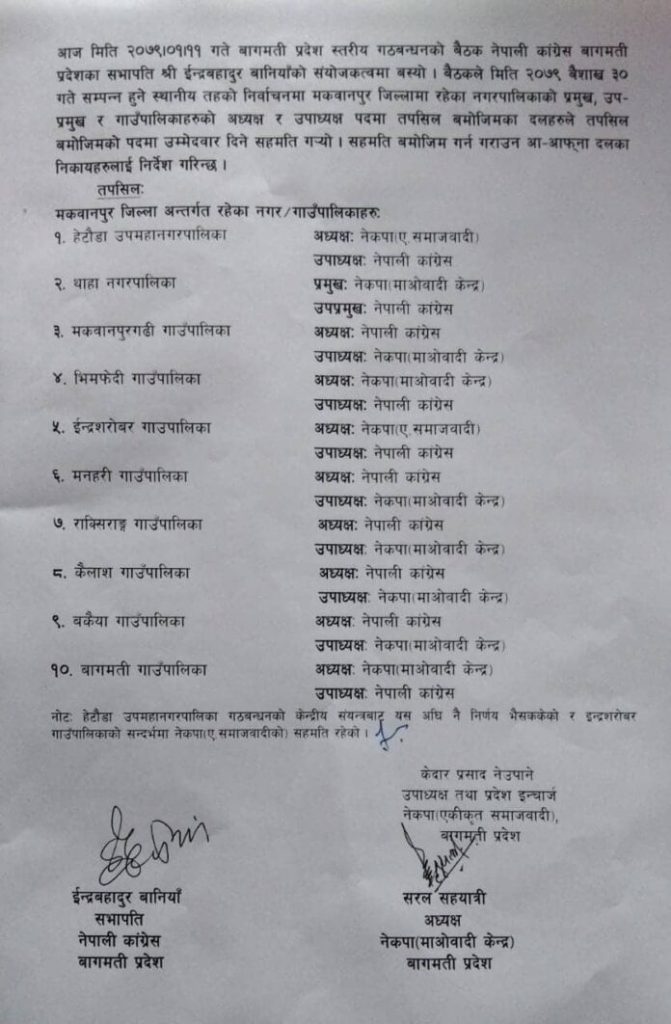 आज मिति २०७९।०१।११ गते बागमती प्रदेश स्तरीय गठबन्धनको बैठक नेपाली कांग्रेस बागमती
प्रदेशका सभापति श्री ईन्द्रबहादुर बानियाँको संयोजकत्वमा बस्यो । बैठकले मिति २०७९ बैशाख ३०
गते सम्पन्न हुने स्थानीय तहको निर्वाचनमा मकवानपुर जिल्लामा रहेका नगरपालिकाको प्रमुख, उप-
प्रमुख र गाउँपालिकाहरुको अध्यक्ष र उपाध्यक्ष पदमा तपसिल बमोजिमका दलहरुले तपसिल
बमोजिमको पदमा उम्मेदवार दिने सहमति गर्‍यो । सहमति बमोजिम गर्न गराउन आ-आफ्ना दलका
निकायहरुलाई निर्देश गरिन्छ ।
तपसिल:
मकवानपुर जिल्ला अन्तर्गत रहेका नगर/गाउँपालिकाहरु:
१. हेटौडा उपमहानगरपालिका अध्यक्ष: नेकपा(ए.समाजवादी)
उपाध्यक्ष: नेपाली कांग्रेस
२. थाहा नगरपालिका प्रमुख: नेकपा(माओवादी केन्द्र)
उपप्रमुख: नेपाली कांग्रेस
३. मकवानपुरगढी गाउँपालिका अध्यक्ष: नेपाली कांग्रेस
उपाध्यक्ष: नेकपा(माओवादी केन्द्र)
४. भिमफेदी गाउँपालिका अध्यक्ष: नेकपा(माओवादी केन्द्र)
उपाध्यक्ष: नेपाली कांग्रेस
५. ईन्द्रशरोबर गाउपालिका अध्यक्ष: नेकपा(ए.समाजवादी)
उपाध्यक्ष: नेपाली कांग्रेस
६. मनहरी गाउँपालिका अध्यक्ष: नेपाली कांग्रेस
उपाध्यक्ष: नेकपा(माओवादी केन्द्र)
७. राक्सिराङ्ग गाउँपालिका अध्यक्ष: नेपाली कांग्रेस
उपाध्यक्ष: नेकपा(माओवादी केन्द्र)
८. कैलाश गाउँपालिका अध्यक्ष: नेपाली कांग्रेस
उपाध्यक्ष: नेकपा(माओवादी केन्द्र)
९. बकैया गाउँपालिका अध्यक्ष: नेपाली कांग्रेस
उपाध्यक्ष: नेकपा(माओवादी केन्द्र)
१०. बागमती गाउँपालिका अध्यक्ष: नेकपा(माओवादी केन्द्र)
उपाध्यक्ष: नेपाली कांग्रेस
नोट: हेटौडा उपमहानगरपालिका गठबन्धनको केन्द्रीय संयन्त्रबाट यस अघि नै निर्णय भैसककेको र इन्द्रशरोबर
गाउँपालिकाको सन्दर्भमा नेकपा(ए.समाजवादीको) सहमति रहेको ।
केदार प्रसाद नेउपाने
उपाध्यक्ष तथा प्रदेश इन्चार्ज
नेकपा(एकीकृत समाजवादी),
बागमती प्रदेश
ईन्द्रबहादुर बानियाँ
सभापति
नेपाली कांग्रेस
बागमती प्रदेश
सरल सहयात्री
अध्यक्ष
नेकपा(माओवादी केन्द्र)
बागमती प्रदेश